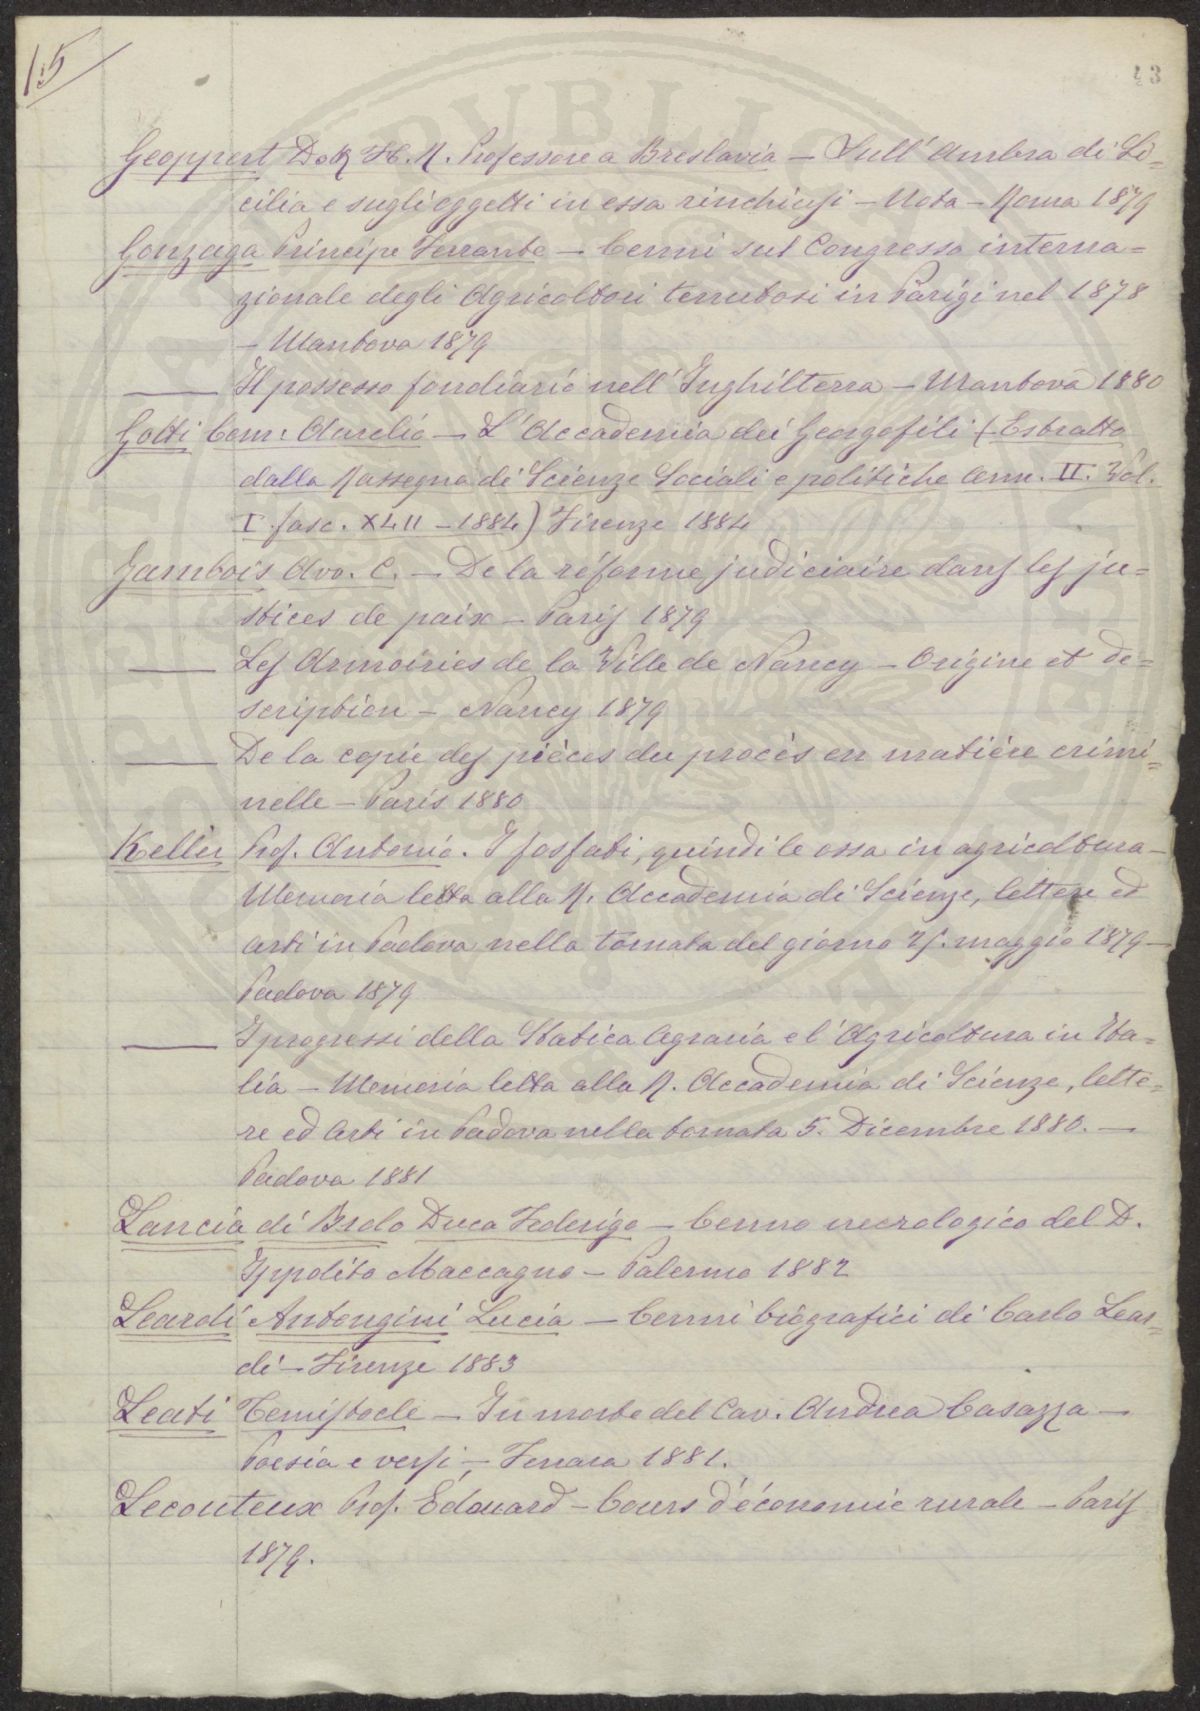 15
43
Geoppert Dok H. R. Professore a Breslavia — Sull'Ambra di Si=
cilia e sugli oggetti in essa rinchiusi — Nota — Roma 1879
Gonzaga Principe Ferrante — Cenni sul Congresso interna=
zionale degli Agricoltori tenutosi in Parigi nel 1878
— Mantova 1879
—— Il possesso fondiario nell'Inghilterra — Mantova 1880
Gotti Com: Aurelio — L'Accademia dei Georgofili (Estratto
dalla Rassegna di Scienze Sociali e politiche Ann. II. Vol.
I. fasc. XLII — 1884) Firenze 1884
Jambois Avv. C. — De la réforme judiciaire dans les ju=
stices de paix — Paris 1879
—— Les Armoiries de la Ville de Nancy — Origine et de=
scription — Nancy 1879
—— De la copie des pièces du procès en matière crimi=
nelle — Paris 1880
Keller Prof. Antonio. I fosfati, quindi le ossa in agricoltura —
Memoria letta alla R. Accademia di Scienze, lettere ed
arti in Padova nella tornata del giorno 25. maggio 1879 —
Padova 1879
—— I progressi della Statica Agraria e l'Agricoltura in Ita=
lia — Memoria letta alla R. Accademia di Scienze, lette=
re ed Arti in Padova nella tornata 5. Dicembre 1880. —
Padova 1881
Lancia di Brolo Duca Federigo — Cenno necrologico del D.
Ippolito Maccagno — Palermo 1882
Leardi Antongini Lucia — Cenni biografici di Carlo Lear=
di — Firenze 1883
Leati Temistocle — In morte del Cav. Andrea Casazza —
Poesia e versi — Ferrara 1881.
Lecouteux Prof. Edouard — Cours d'économie rurale — Paris
1879.